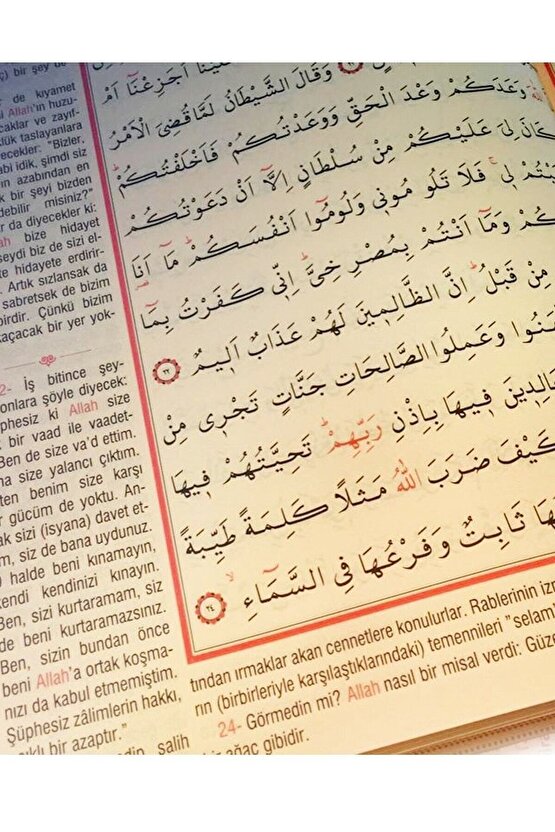 عَلَيْنَا اَجَزِعْنَا اَمْ
وَقَالَ الشَّيْطَانُ لَمَّا قُضِيَ الْاَمْرُ
وَعَدَكُمْ وَعْدَ الْحَقِّ وَوَعَدْتُكُمْ فَاَخْلَفْتُكُمْ
كَانَ لِيَ عَلَيْكُمْ مِنْ سُلْطَانٍ اِلَّآ اَنْ دَعَوْتُكُمْ
لِي فَلَا تَلُومُونِي وَلُومُٓوا اَنْفُسَكُمْ مَٓا اَنَا۬
وَمَٓا اَنْتُمْ بِمُصْرِخِيَّ اِنِّي كَفَرْتُ بِمَٓا
مِنْ قَبْلُ اِنَّ الظَّالِمِينَ لَهُمْ عَذَابٌ اَلِيمٌ ٢٢
وَعَمِلُوا الصَّالِحَاتِ جَنَّاتٍ تَجْرِي مِنْ
فِيهَا بِاِذْنِ رَبِّهِمْ تَحِيَّتُهُمْ فِيهَا
كَيْفَ ضَرَبَ اللّٰهُ مَثَلًا كَلِمَةً طَيِّبَةً
ثَابِتٌ وَفَرْعُهَا فِي السَّمَٓاءِ ٢٤
bir şey de
de kıyamet
Allah'ın huzu-
caklar ve zayıf-
klük taslayanlara
ecekler: "Bizler,
abi idik, şimdi siz
ın azabından en
k bir şeyi bizden
debilir misiniz?"
r da diyecekler ki:
ah bize hidayet
seydi biz de sizi el-
te hidayete erdirir-
. Artık sızlansak da
sabretsek de bizim
birdir. Çünkü bizim
kaçacak bir yer yok-
2- İş bitince şey-
onlara şöyle diyecek:
phesiz ki Allah size
k bir vaad ile vaadet-
Ben de size va'd ettim.
na size yalancı çıktım.
ten benim size karşı
r gücüm de yoktu. An-
ak sizi (isyana) davet et-
m, siz de bana uydunuz.
) halde beni kınamayın,
kendi kendinizi kınayın.
Ben, sizi kurtaramam, siz
de beni kurtaramazsınız.
Ben, sizin bundan önce
beni Allah'a ortak koşma-
nızı da kabul etmemiştim.
Şüphesiz zâlimlerin hakkı,
ıklı bir azaptır."
salih
tından ırmaklar akan cennetlere konulurlar. Rablerinin iz
rın (birbirleriyle karşılaştıklarındaki) temennileri "selam
24- Görmedin mi? Allah nasıl bir misal verdi: Güze
ir ağaç gibidir.